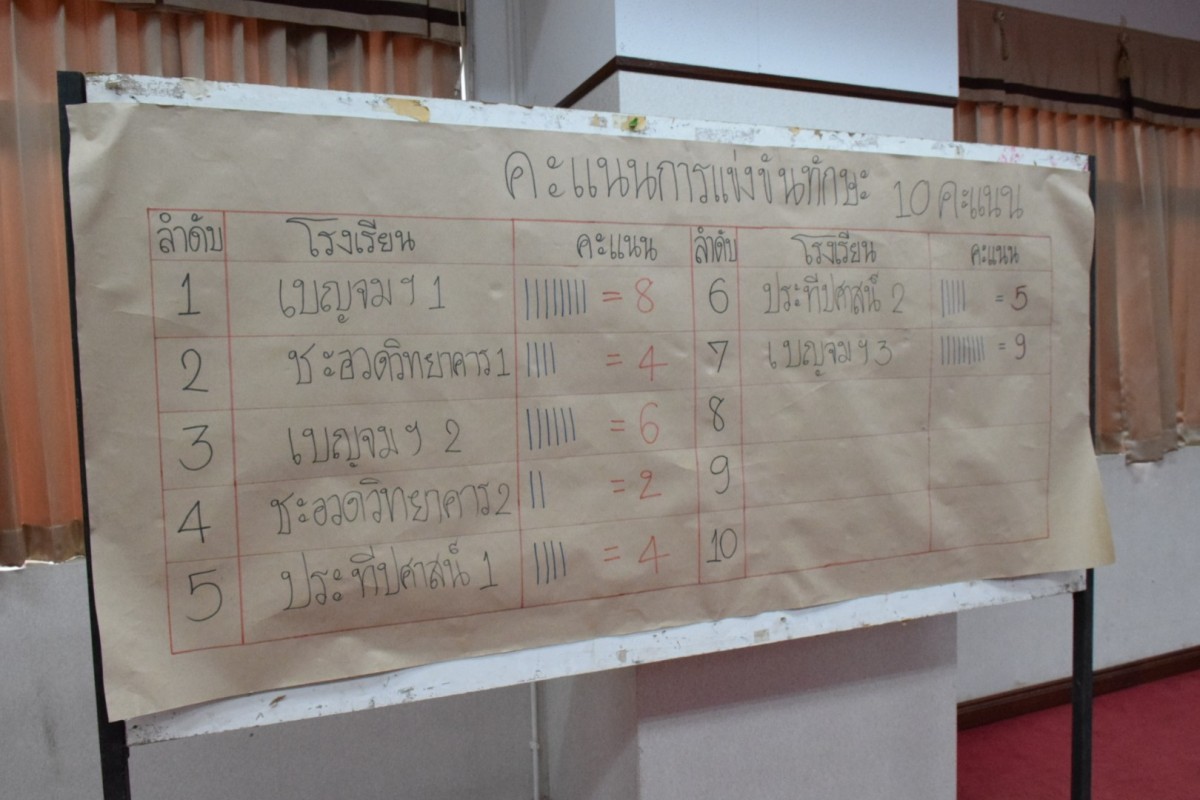 คะแนนการแข่งขันทักษะ 10 คะแนน
ลำดับ โรงเรียน คะแนน ลำดับ โรงเรียน คะแนน
1 เบญจมฯ 1 |||||||| = 8 6 ประทีปศาสน์ 2 ||||| = 5
2 ชะอวดวิทยาคาร 1 |||| = 4 7 เบญจมฯ 3 ||||||||| = 9
3 เบญจมฯ 2 |||||| = 6 8
4 ชะอวดวิทยาคาร 2 || = 2 9
5 ประทีปศาสน์ 1 |||| = 4 10